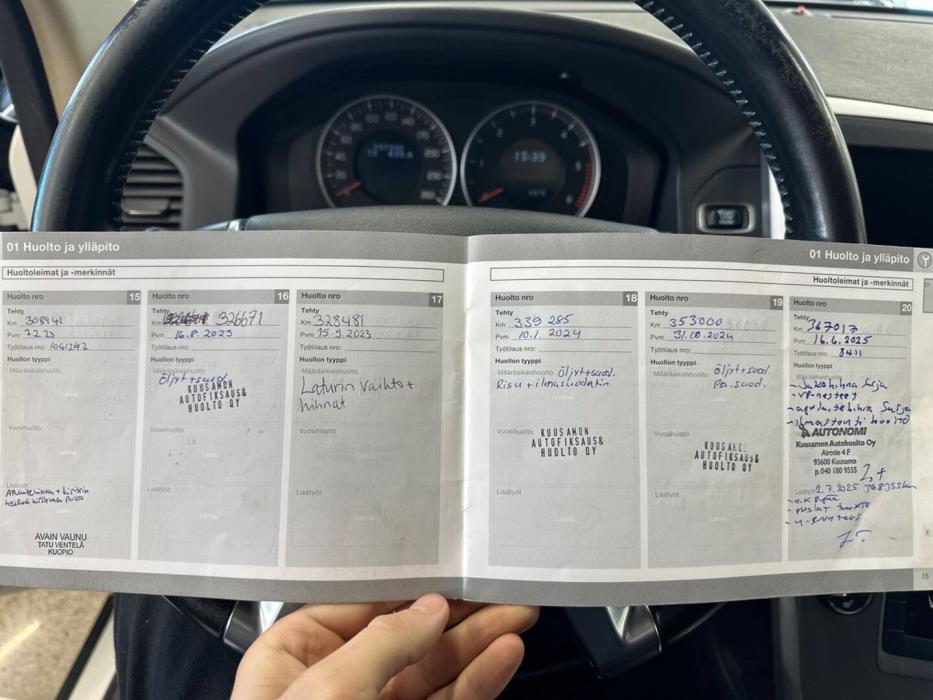 15:39
01 Huolto ja ylläpito
Huoltoleimat ja -merkinnät
Huolto nro 15
Tehty
Km 308941
Pvm 7.2.23
Työtilaus nro:
Huollon tyyppi
Määräaikaishuolto
Vuosihuolto
Lisätyöt
AVAIN VAUNU
TATU VENTELÄ
KUOPIO
Huolto nro 16
Tehty
Km 326671
Pvm 16.8.2023
Työtilaus nro:
Huollon tyyppi
Määräaikaishuolto
Öljyt+suod.
KUUSAMON
AUTOFIKSAUS&
HUOLTO OY
Vuosihuolto
Lisätyöt
Huolto nro 17
Tehty
Km 328481
Pvm 15.9.2023
Työtilaus nro:
Huollon tyyppi
Määräaikaishuolto
Laturin vaihto+
hihnat
Vuosihuolto
Lisätyöt
01 Huolto ja ylläpito
Huoltoleimat ja -merkinnät
Huolto nro 18
Tehty
Km 339 285
Pvm 10.1.2024
Työtilaus nro:
Huollon tyyppi
Määräaikaishuolto Öljyt+suod.
+ ilmasuodatin
Vuosihuolto
KUUSAMON
AUTOFIKSAUS&
HUOLTO OY
Lisätyöt
Huolto nro 19
Tehty
Km 353000
Pvm 31.10.2024
Työtilaus nro:
Huollon tyyppi
Määräaikaishuolto Öljyt+suod.
Pa.suod.
Vuosihuolto
KUUSAMON
AUTOFIKSAUS&
HUOLTO OY
Lisätyöt
Huolto nro 20
Tehty
Km 367017
Pvm 16.6.2025
Työtilaus nro:
Huollon tyyppi
- Jakohihna Sarja
- apulaitehihna Sarja
- ilmastointi huolto
AUTONOMI
Kuusamon Autohuolto Oy
Airotie 4 F
93600 Kuusamo
p. 040 180 9555
Lisätyöt 2.7.2025 368355km
15